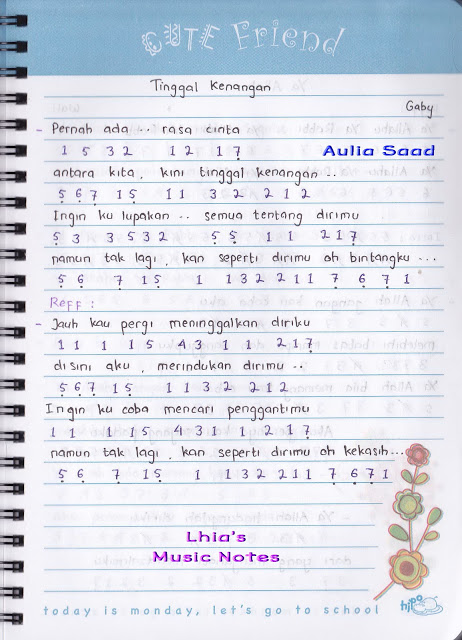 CUTE Friend
Tinggal Kenangan
Gaby
- Pernah ada .. rasa cinta
1 5 3 2 1 2 1 7̣
Aulia Saad
antara kita, kini tinggal kenangan ..
5̣ 6̣ 7̣ 1 5̣ 1 1 3 2 2 1 2
Ingin ku lupakan .. semua tentang dirimu
5̣ 3 3 5 3 2 5̣ 5̣ 1 1 2 1 7̣
namun tak lagi, kan seperti dirimu oh bintangku ...
5̣ 6̣ 7̣ 1 5̣ 1 1 3 2 2 1 1 7̣ 6̣ 7̣ 1
Reff :
- Jauh kau pergi meninggalkan diriku
1 1 1 1 5 4 3 1 1 2 1 7̣
disini aku, merindukan dirimu ..
5̣ 6̣ 7̣ 1 5̣ 1 1 3 2 2 1 2
Ingin ku coba mencari penggantimu
1 1 1 1 1 5 4 3 1 1 2 1 7̣
namun tak lagi, kan seperti dirimu oh kekasih...
5̣ 6̣ 7̣ 1 5̣ 1 1 3 2 2 1 1 7̣ 6̣ 7̣ 1
Lhia's
Music Notes
today is monday, let's go to school